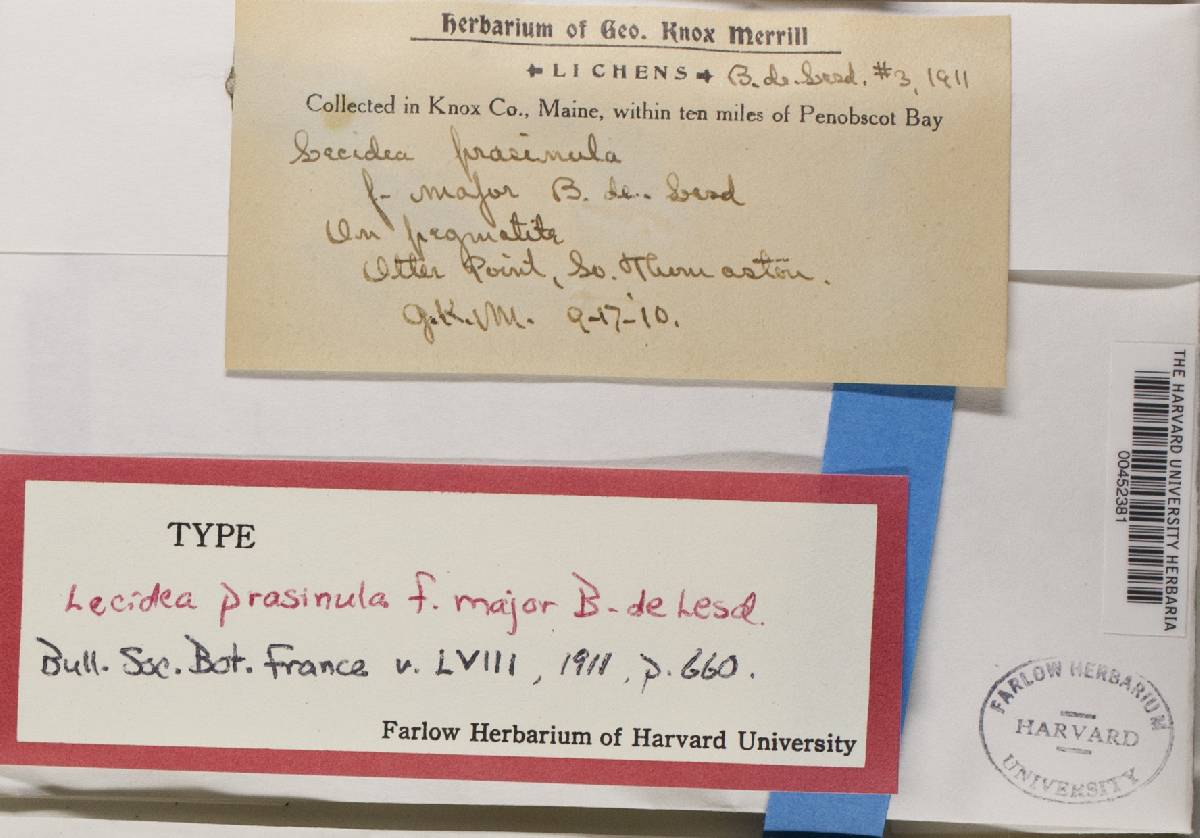 Herbarium of Geo. Knox Merrill
LICHENS B. de Lesd. #3, 1911
Collected in Knox Co., Maine, within ten miles of Penobscot Bay
Lecidea prasinula
f. major B. de Lesd
On pegmatite
Otter Point, So. Thomaston.
G.K.M. 9-17-'10.
TYPE
Lecidea prasinula f. major B. de Lesd.
Bull. Soc. Bot. France v. LVIII, 1911, p. 660.
Farlow Herbarium of Harvard University
THE HARVARD UNIVERSITY HERBARIA
00452381
FARLOW HERBARIUM
HARVARD
UNIVERSITY